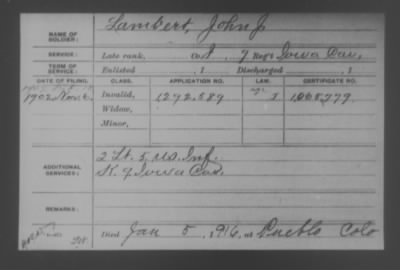 NAME OF SOLDIER: Lambert, John J.
SERVICE: Late rank, Co. I, 7 Reg't Iowa Cav.
TERM OF SERVICE: Enlisted , 1 Discharged , 1
DATE OF FILING. CLASS. APPLICATION NO. LAW. CERTIFICATE NO.
1902 Nov. 6. Invalid, 1,292,589 1,068,779
Widow,
Minor,
ADDITIONAL SERVICES: 2 Lt. 5 U.S. Inf.
K. 9 Iowa Cav.
REMARKS:
Died Jan 5, 1916, at Pueblo Colo